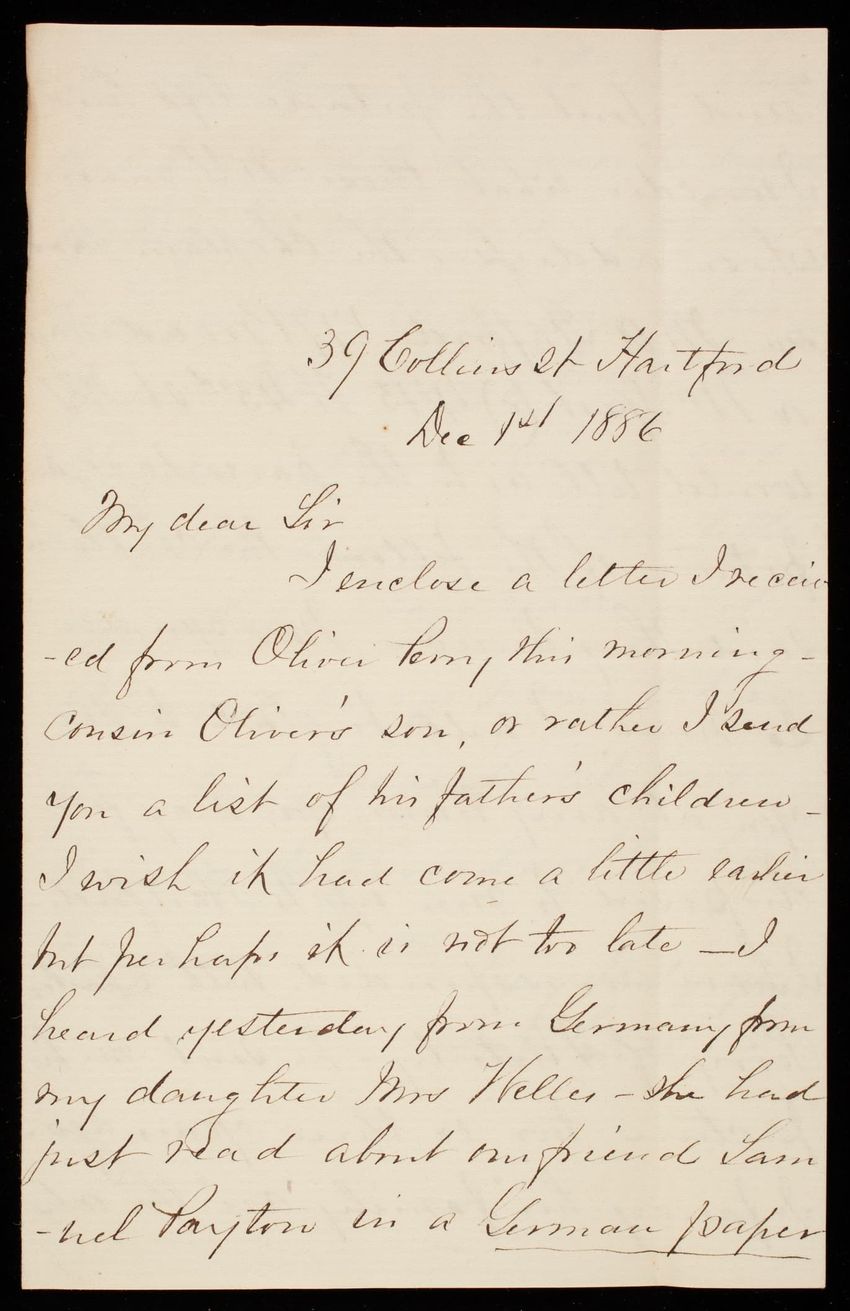 39 Collins st Hartford
Dec 1st 1886
My dear Sir
I enclose a letter I receiv
-ed from Oliver Perry this morning -
cousin Oliver's son, or rather I send
you a list of his father's children -
I wish it had come a little earlier
but perhaps it is not too late - I
heard yesterday from Germany from
my daughter Mrs Welles - she had
just read about our friend Sam
-uel Payton in a German paper